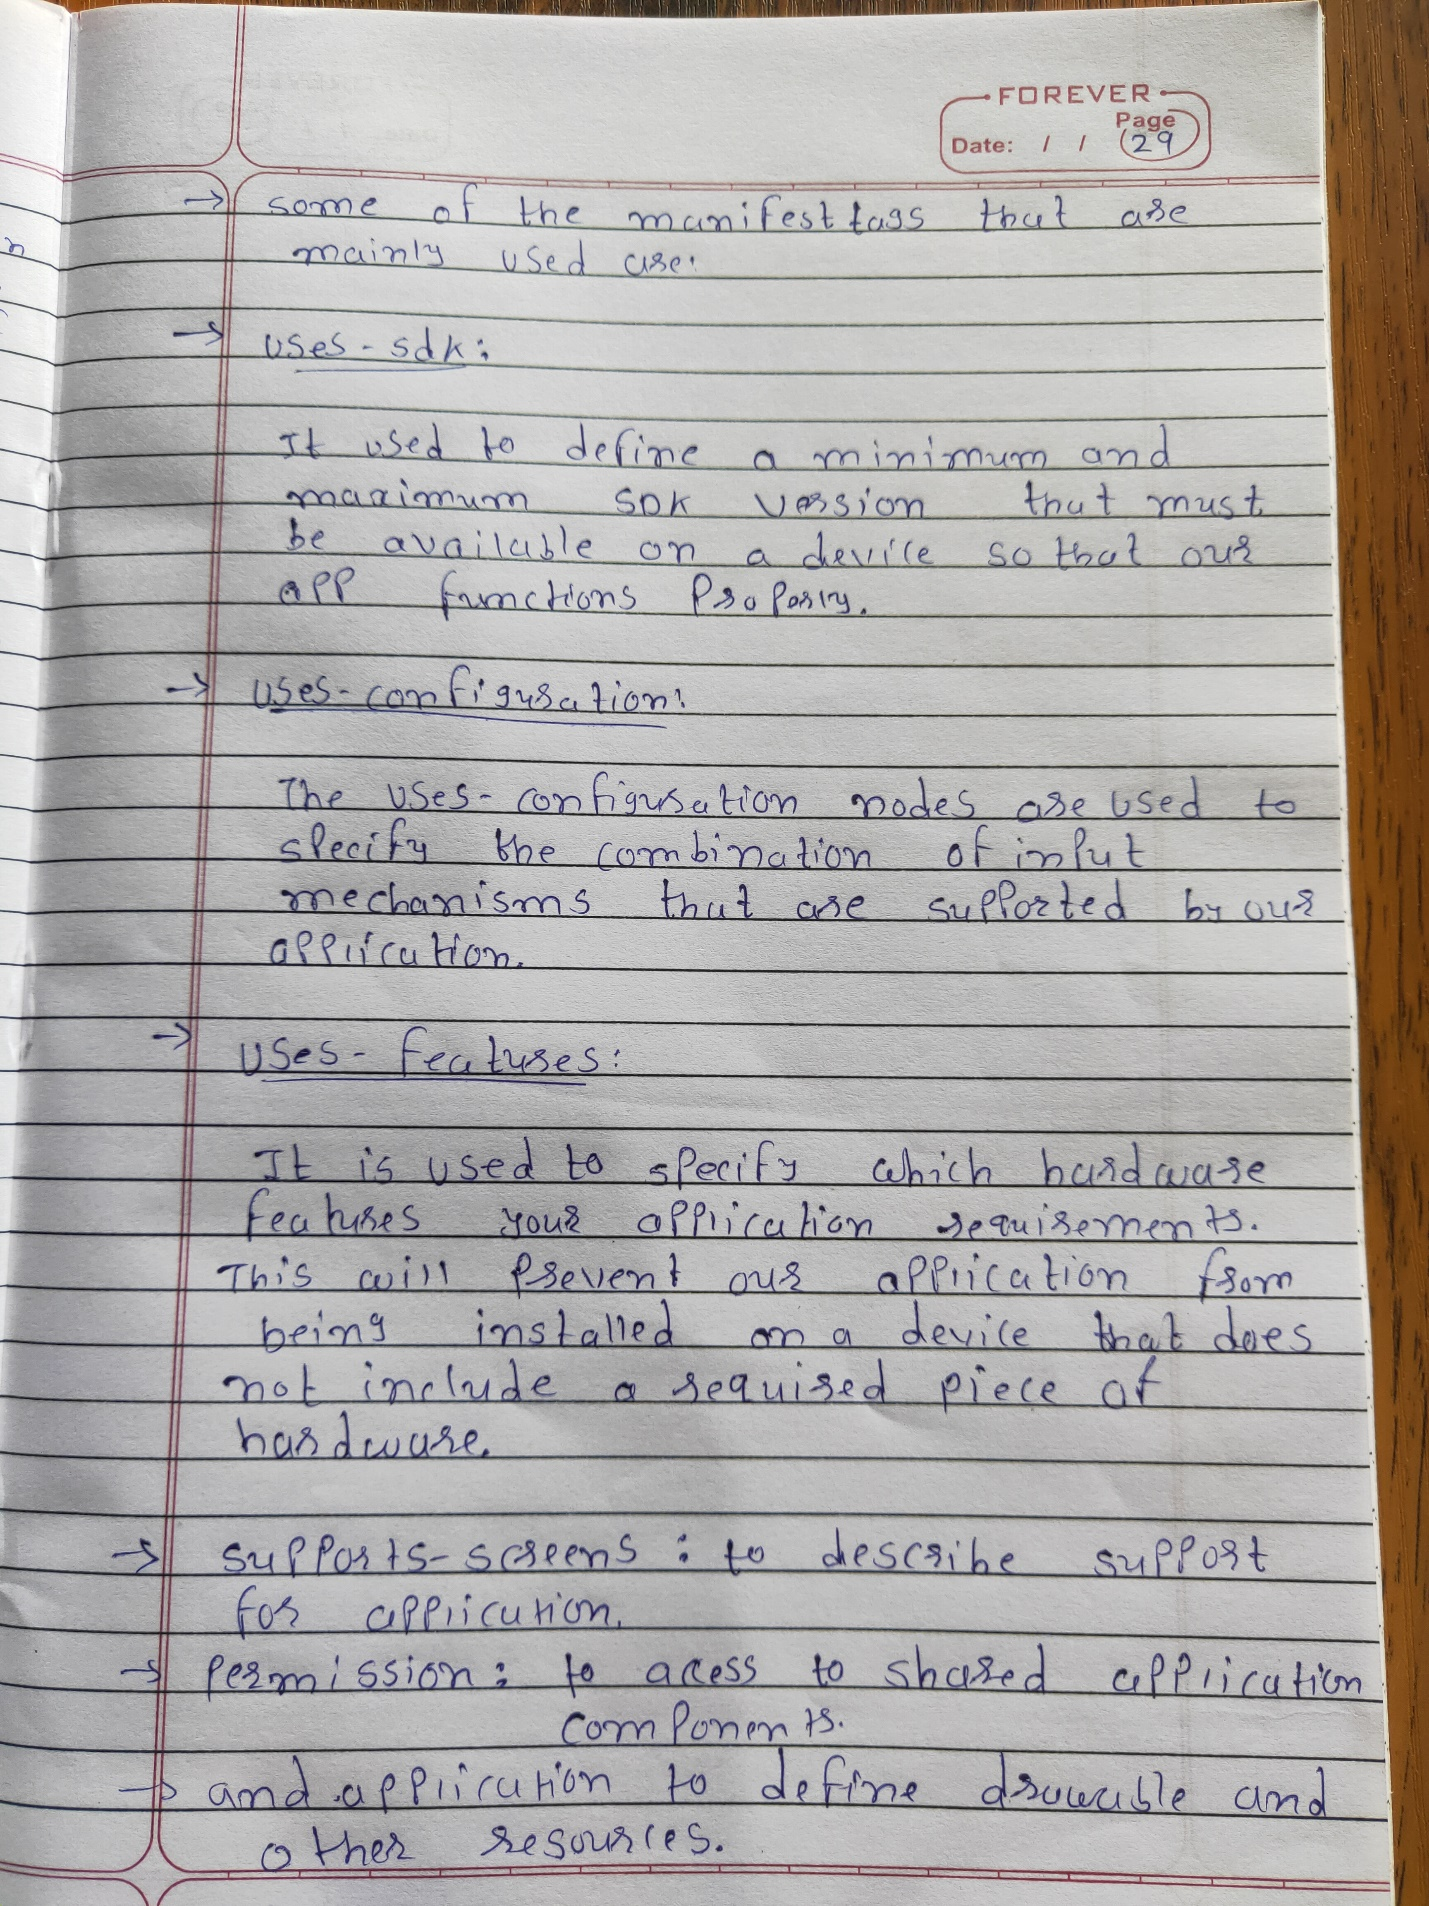 FOREVER
Page
Date: / / 29
→ some of the manifest tags that are
mainly used are:
→ uses-sdk:
It used to define a minimum and
maximum SDK version that must
be available on a device so that our
app functions Properly.
→ uses-configuration:
The uses-configuration nodes are used to
specify the combination of input
mechanisms that are supported by our
application.
→ uses-features:
It is used to specify which hardware
features your application requirements.
This will prevent our application from
being installed on a device that does
not include a required piece of
hardware.
→ supports-screens : to describe support
for application.
→ permission: to acess to shared application
components.
→ and application to define drawable and
other resources.